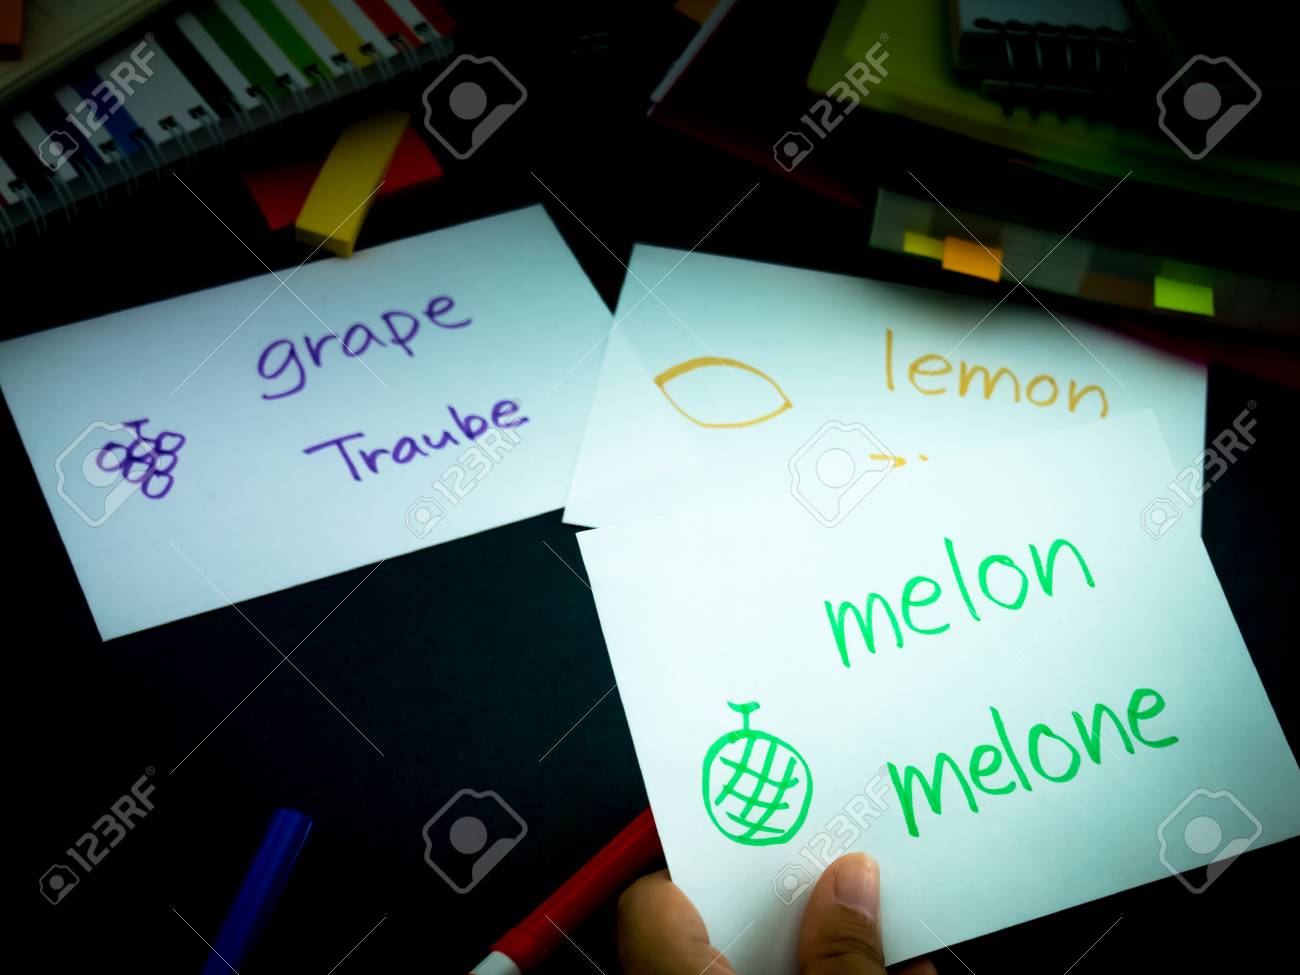 grape
Traube
lemon
melon
melone
123RF
123RF
123RF
123RF
123RF
123RF
123RF